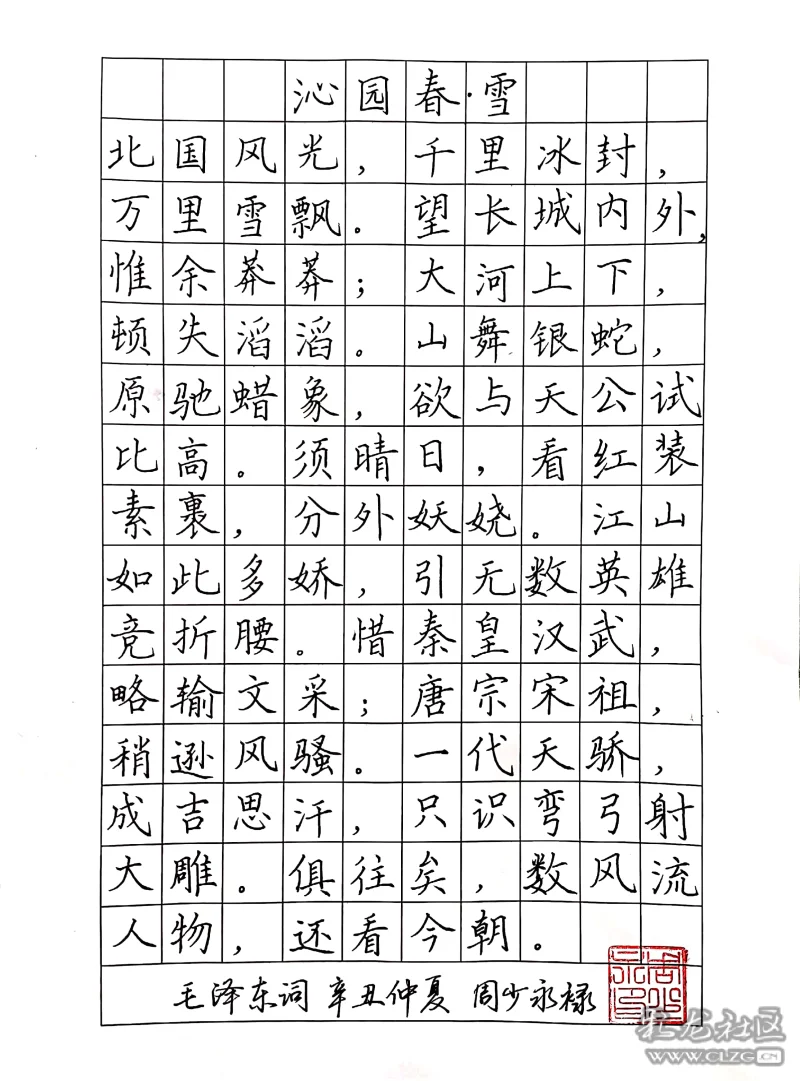 沁园春·雪
北国风光，千里冰封，
万里雪飘。望长城内外，
惟余莽莽；大河上下，
顿失滔滔。山舞银蛇，
原驰蜡象，欲与天公试
比高。须晴日，看红装
素裹，分外妖娆。江山
如此多娇，引无数英雄
竞折腰。惜秦皇汉武，
略输文采；唐宗宋祖，
稍逊风骚。一代天骄，
成吉思汗，只识弯弓射
大雕。俱往矣，数风流
人物，还看今朝。
毛泽东词 辛丑仲夏 周少永禄
龙社区
WWW.CLZG.CN